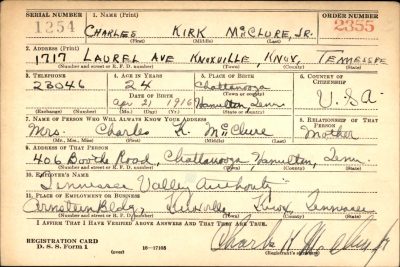 SERIAL NUMBER 1. NAME (Print) ORDER NUMBER
1254 CHARLES KIRK McCLURE, JR. 2355
(First) (Middle) (Last)
2. ADDRESS (Print)
1717 LAUREL AVE KNOXVILLE, KNOX, TENNESSEE
(Number and street or R. F. D. number) (Town) (County) (State)
3. TELEPHONE 4. AGE IN YEARS 5. PLACE OF BIRTH 6. COUNTRY OF CITIZENSHIP
23046 24 Chattanooga
DATE OF BIRTH (Town or county) U.S.A.
Apr 21 1916 Hamilton, Tenn
(Exchange) (Number) (Mo.) (Day) (Yr.) (State or country)
7. NAME OF PERSON WHO WILL ALWAYS KNOW YOUR ADDRESS 8. RELATIONSHIP OF THAT PERSON
Mrs. Charles K. McClure Mother
(Mr., Mrs., Miss) (First) (Middle) (Last)
9. ADDRESS OF THAT PERSON
406 Booth Road, Chattanooga, Hamilton, Tenn.
(Number and street or R. F. D. number) (Town) (County) (State)
10. EMPLOYER'S NAME
Tennessee Valley Authority
11. PLACE OF EMPLOYMENT OR BUSINESS
Arnstein Bldg, Knoxville, Knox, Tennessee
(Number and street or R. F. D. number) (Town) (County) (State)
I AFFIRM THAT I HAVE VERIFIED ABOVE ANSWERS AND THAT THEY ARE TRUE.
REGISTRATION CARD Charles K. McClure Jr
D. S. S. Form 1 (over) 16—17105 (Registrant's signature)